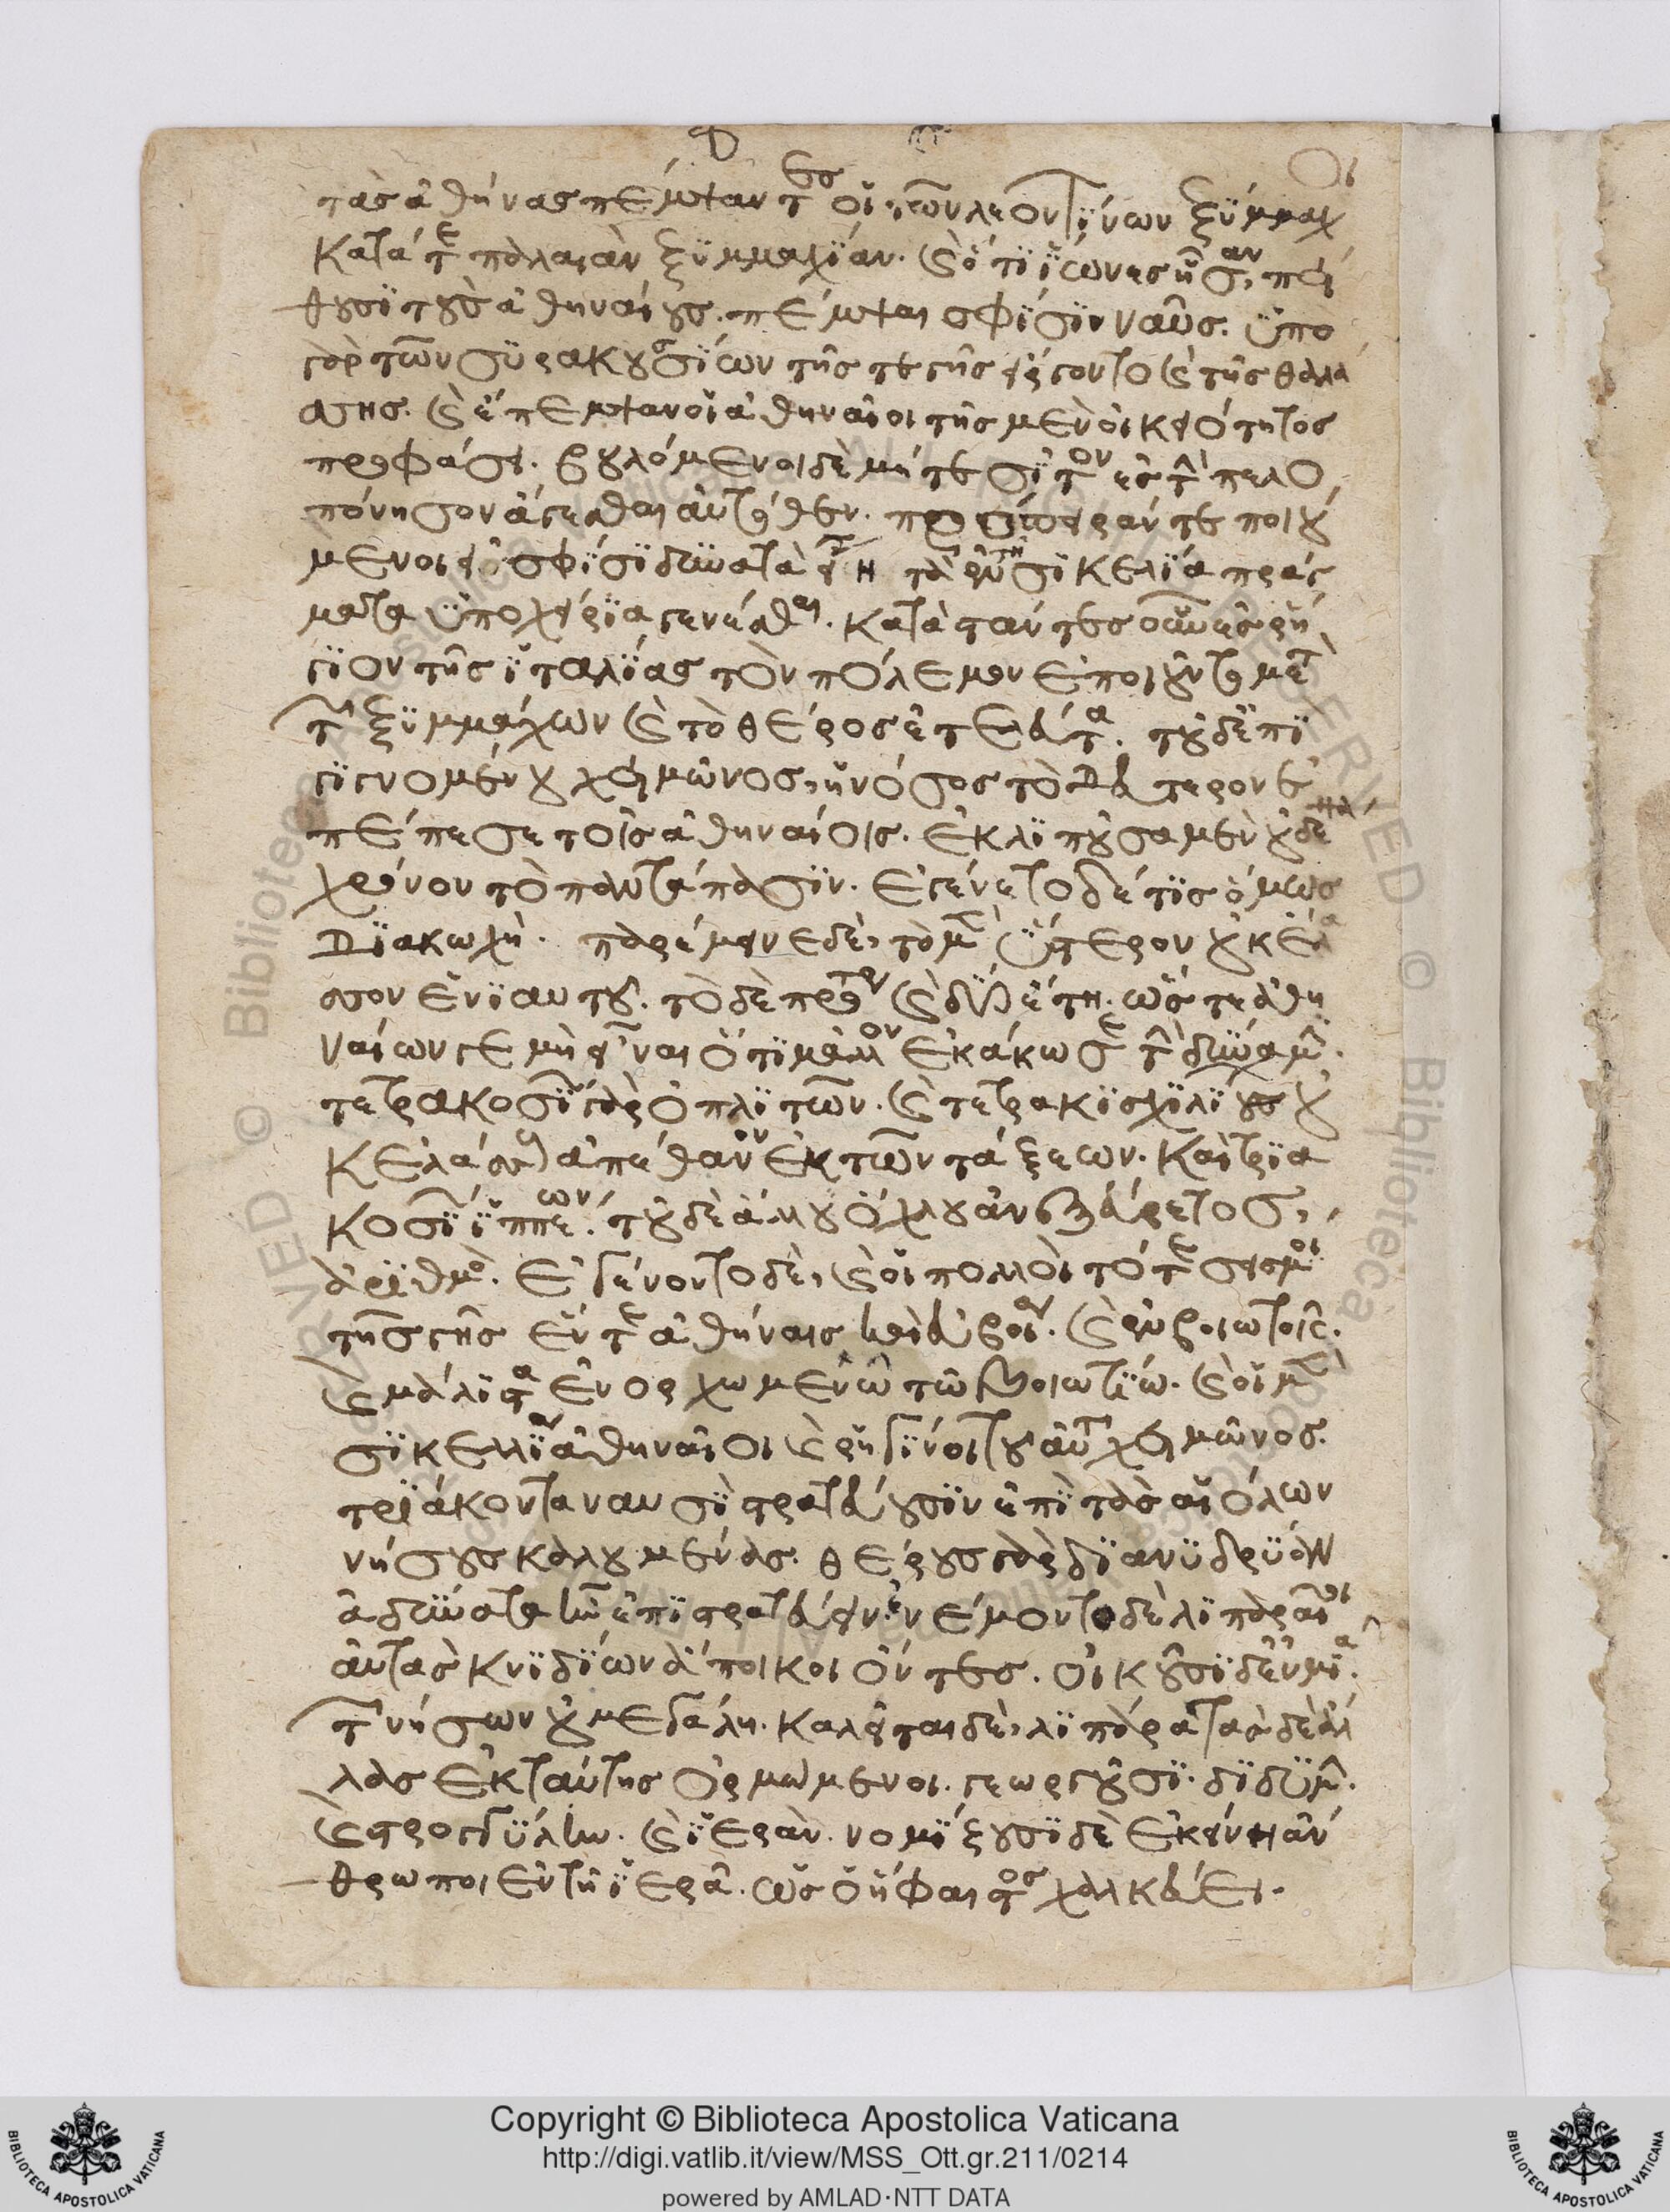 τὰς ἀθήνας πέμψαντες οἱ τῶν λεοντίνων ξύμμαχ
κατά τε παλαιὰν ξυμμαχίαν. καὶ ὅτι ἴωνες ἦσαν, πεί
θουσι τοὺς ἀθηναίους. πέμψαι σφίσιν ναῦς. ὑπὸ
γὰρ τῶν συρακουσίων τῆς τε γῆς εἴργοντο καὶ τῆς θαλά
σσης. καὶ ἔπεμψαν οἱ ἀθηναῖοι τῆς μὲν οἰκειότητος
προφάσει. βουλόμενοι δὲ μήτε σῖτον ἐς τὴν πελο
πόννησον ἄγεσθαι αὐτόθεν. πρόπειράν τε ποιού
μενοι εἰ σφίσι δυνατὰ εἴη τὰ ἐν τῇ σικελία πράγ
ματα ὑποχείρια γενέσθαι. καταστάντες οὖν ἐς ῥή
γιον τῆς ἰταλίας τὸν πόλεμον ἐποιοῦντο μετὰ
τῶν ξυμμάχων καὶ τὸ θέρος ἐτελεύτα. τοῦ δ' ἐπι
γιγνομένου χειμῶνος, ἡ νόσος τὸ δεύτερον ἐ
πέπεσε τοῖς ἀθηναίοις. ἐκλιποῦσα μὲν οὐδένα
χρόνον τὸ παντάπασιν. ἐγένετο δέ τις ὅμως
διακωχή. παρέμεινε δὲ, τὸ μὲν ὕστερον οὐκ ἔλα
σσον ἐνιαυτοῦ. τὸ δὲ πρότερον καὶ δύο ἔτη. ὥστε ἀθη
ναίων γε μὴ εἶναι ὅτι μᾶλλον ἐκάκωσε τὴν δύναμιν.
τετρακοσίων γὰρ ὁπλιτῶν. καὶ τετρακισχιλίους οὐ
κ ἐλάσσους ἀπέθανον ἐκ τῶν τάξεων. καὶ τρια
κοσίων ἱππέων. τοῦ δὲ ἄλλου ὄχλου ἀνεξεύρετος,
ἀριθμός. ἐγένοντο δὲ, καὶ οἱ πολλοὶ τότε σεισμοὶ
τῆς γῆς ἔν τε ἀθήναις καὶ εὐβοίαν. καὶ ἐν βοιωτοῖς.
καὶ μάλιστα ἐν ὀρχωμενῶ τῶ βοιωτίω. καὶ οἱ μὲν
σικελίαν ἀθηναῖοι καὶ ῥηγίνοι τοῦ αὐτοῦ χειμῶνος.
τριάκοντα ναυσὶ στρατεύουσιν ἐπὶ τὰς αἰόλων
νήσους καλουμένας. θέρους γὰρ δι ἀνυδρίαν
ἀδύνατα ἦν ἐπιστρατεύειν. νέμοντο δὲ λιπαραῖοι
αὐτὰς κνιδίων ἄποικοι ὄντες. οἰκοῦσι δ' ἐν μιᾶ.
τῶν νήσων οὐ μεγάλη. καλεῖται δὲ, λιπάρα τὰς δὲ ἄλ
λας ἐκ ταύτης ὁρμώμενοι. γεωργοῦσι. διδύμην.
καὶ στρογγύλην. καὶ ἱεράν. νομίζουσι δὲ ἐκείνη ἄν
θρωποι ἐν τῇ ἱερᾶ. ὡς ὁ ἥφαιστος χαλκεύει.
Copyright © Biblioteca Apostolica Vaticana
http://digi.vatlib.it/view/MSS_Ott.gr.211/0214
powered by AMLAD·NTT DATA
BIBLIOTECA APOSTOLICA VATICANA
BIBLIOTECA APOSTOLICA VATICANA